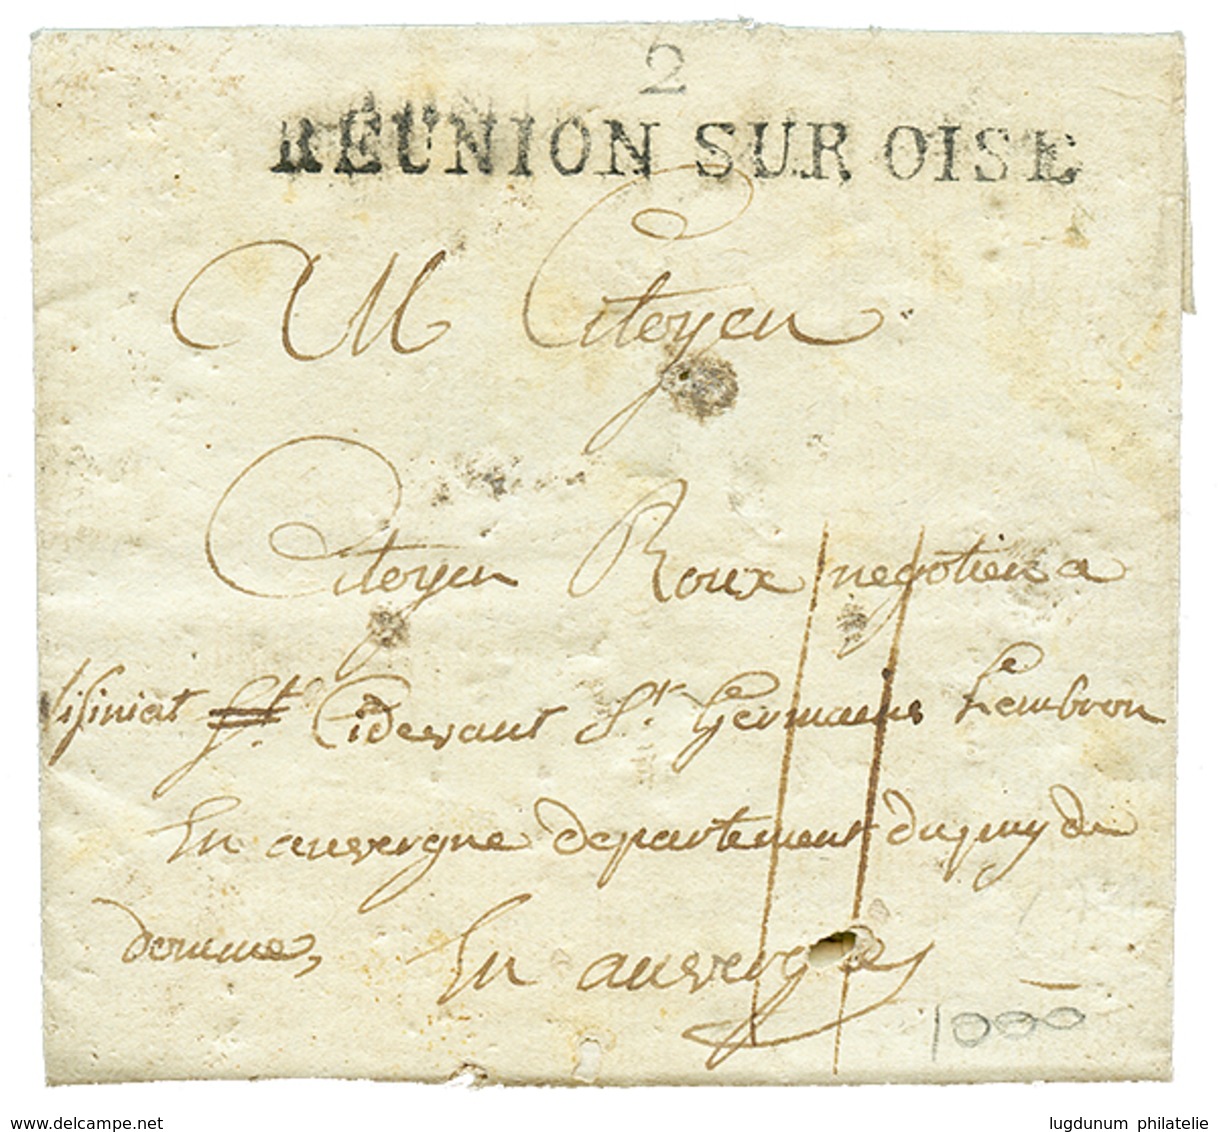 2
REUNION SUR OISE
Au Citoyen
Citoyen Roux negotien a
lisiniat St. Cidevant St. Germains Lembron
En auvergne departement du puy de
domme,
En auvergne
1000
www.delcampe.net
lugdunum philatelie